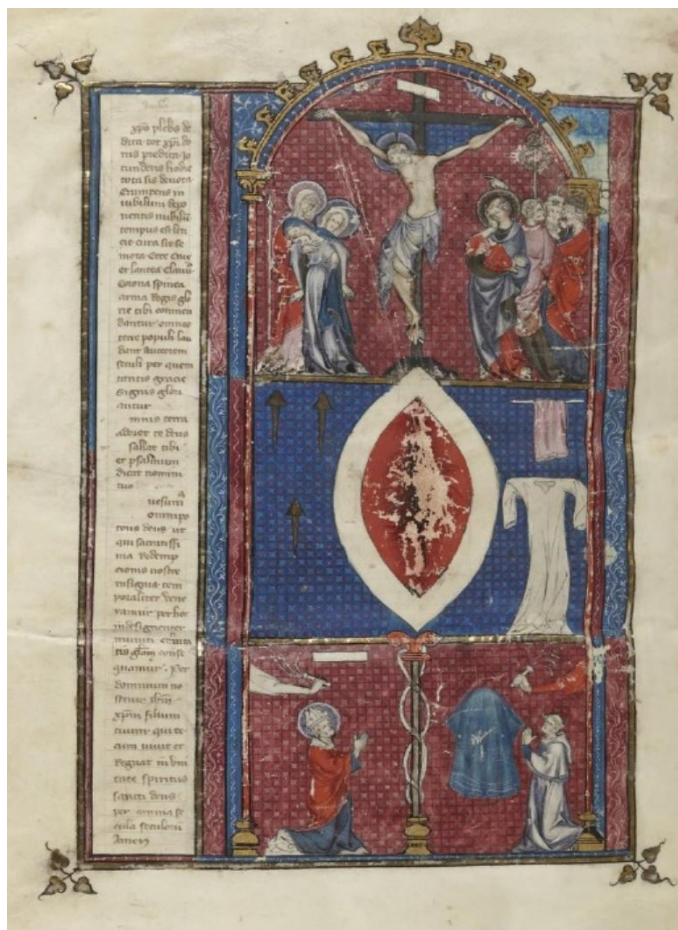 xpo plebs de
dita tot xpi do
nis predita jo
cunderis hodie
tota sis devota
Erumpens in
iubilum depo
nentis nubilum
tempus est
cie cura sit se
mota Ecce crux
et lancea
Corona spinea
arma Regis glo
rie tibi commen
dantur omnes
terre populi lau
dant auctorem
seculi per quem
tantis gracie
Signis glori
antur
mnis terra
adoret te deus
sallat tibi
et psalmum
dicat nomini
tuo
Omnipo
tens deus ut
qui sacratissi
ma Redemp
cionis nostre
insignia tem
poraliter vene
ramur per hec
indesinenter
muniti
tis gliam conse
quamur . Per
dominum no
strum ihm
xpm filium
tuum qui te
cum vivit et
Regnat in uni
tate spiritus
sancti deus
per omnia se
cula seculorum
Amen